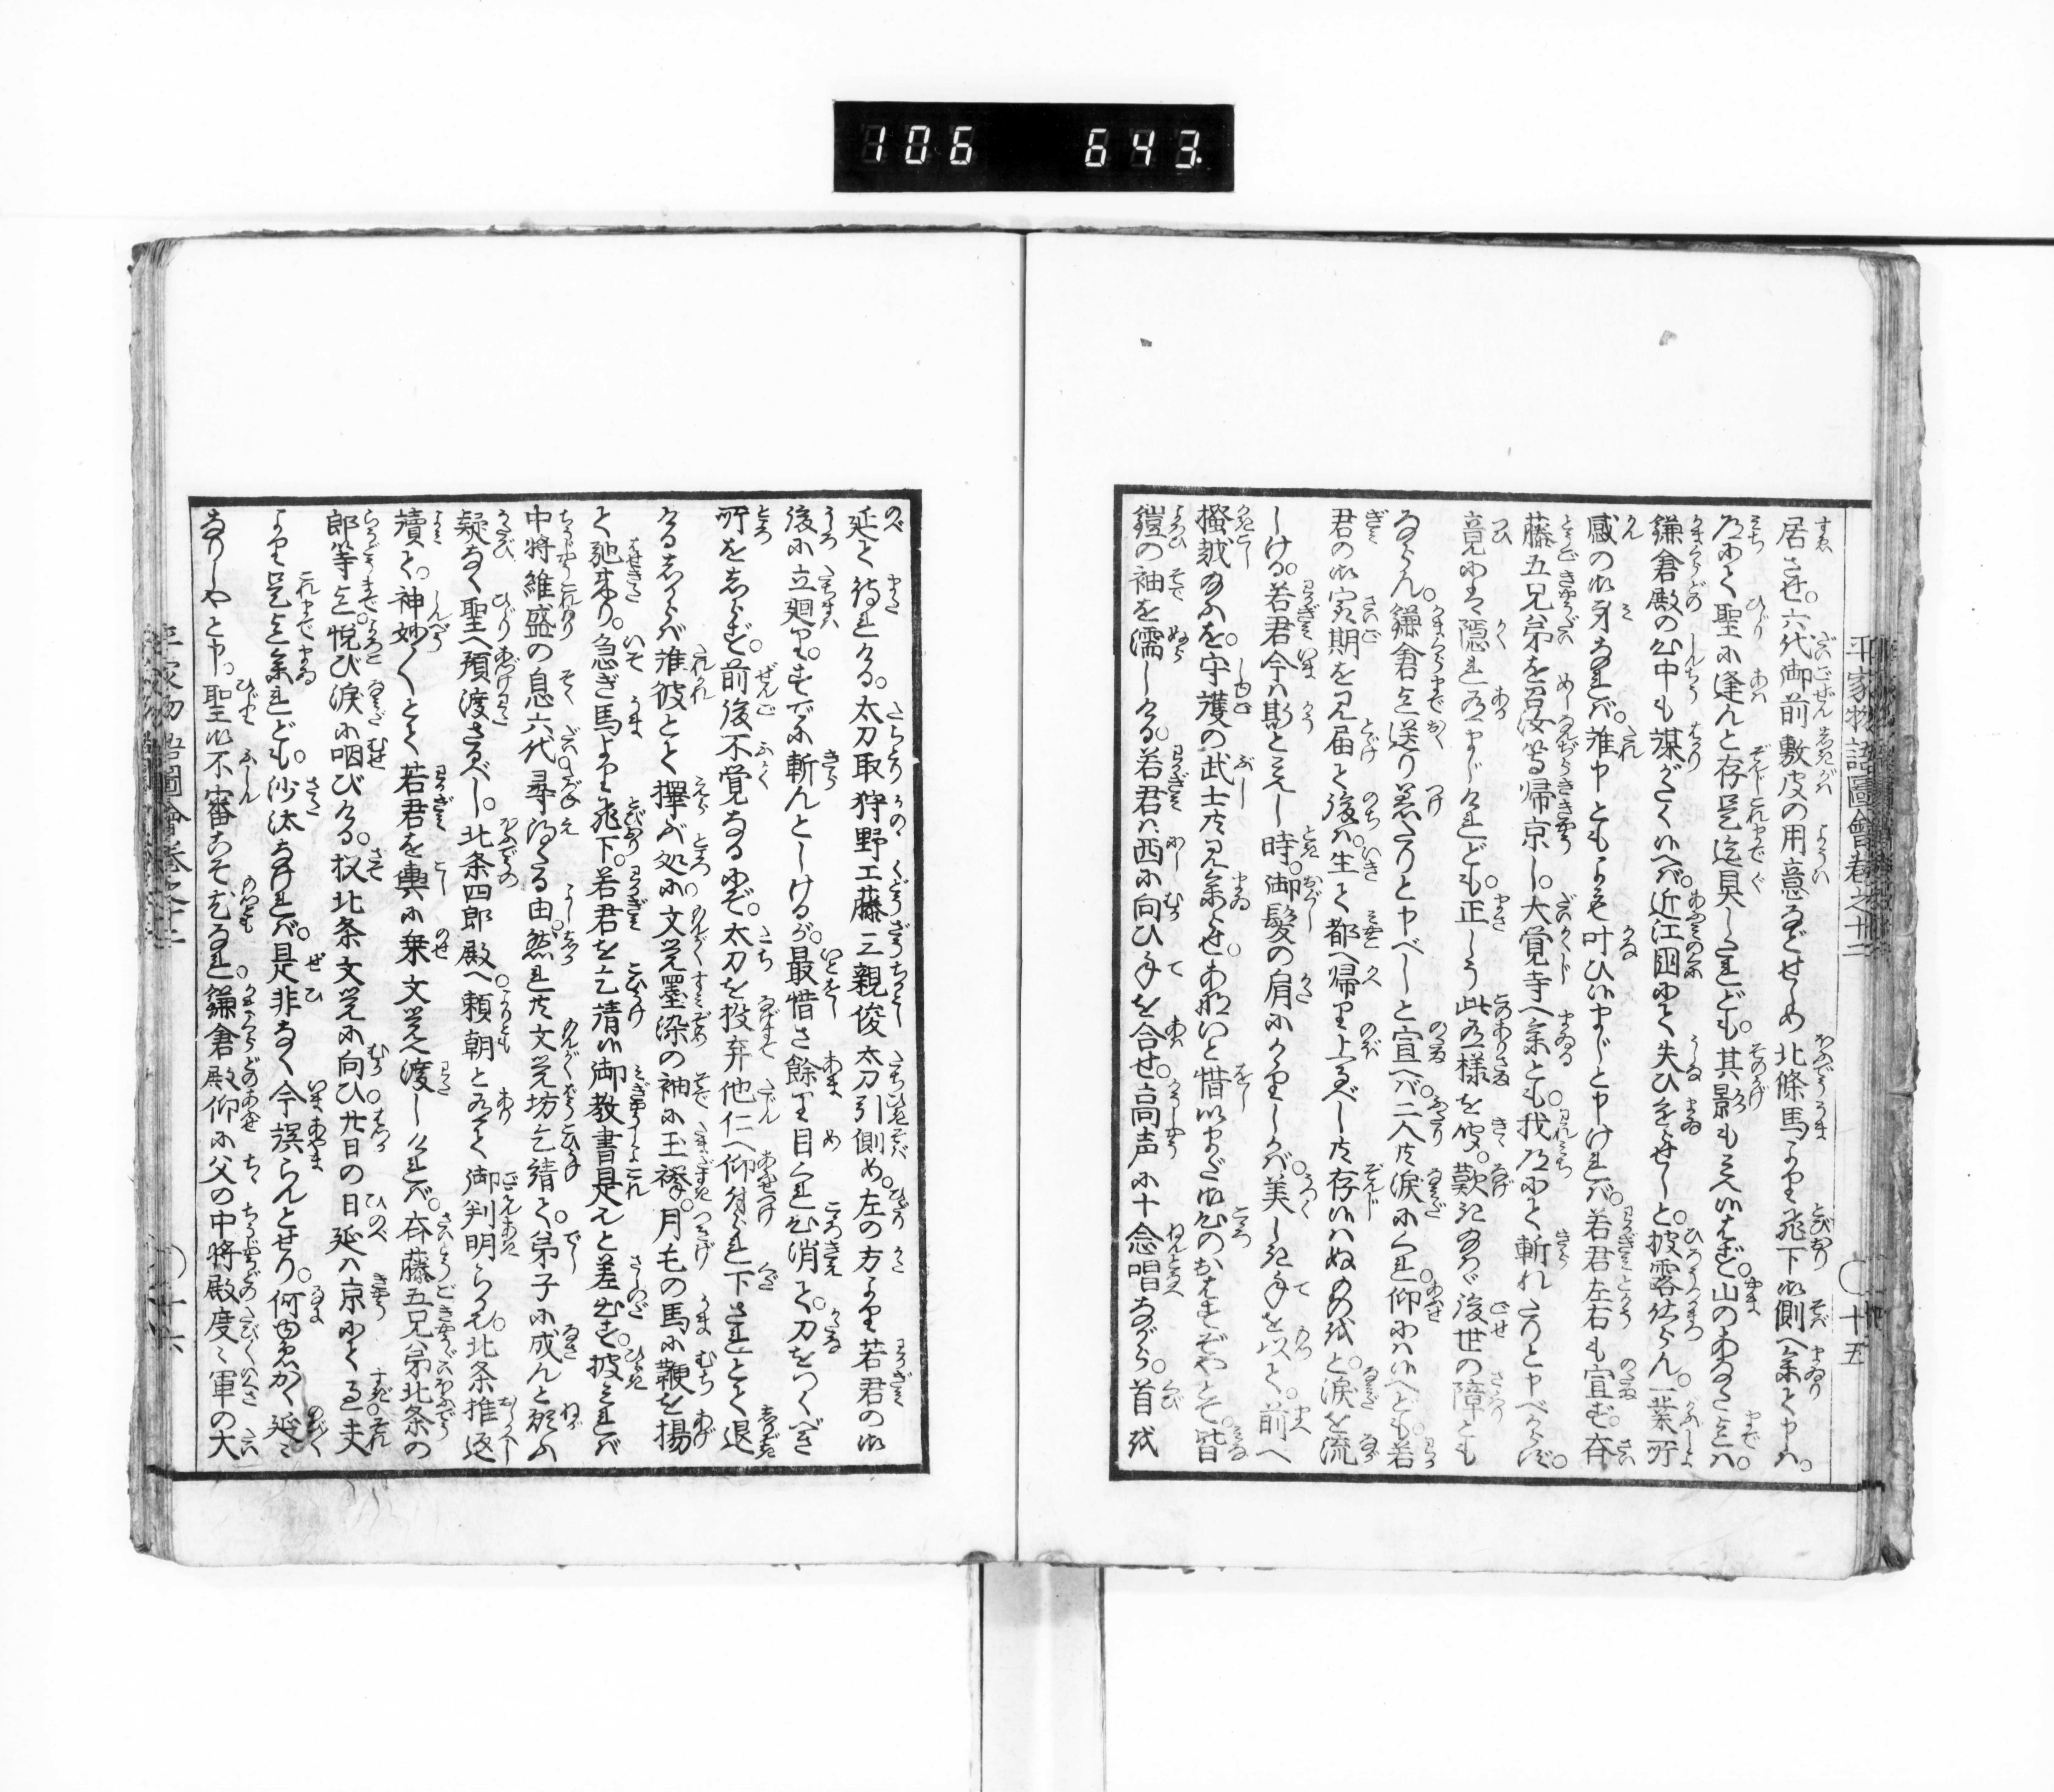 106 643
平家物語圖會巻之十二 〇十五
居させ。六代御前敷皮の用意などせしめ北條馬より飛下御側へ参て申は。
道にて聖に逢んと存是迄具したれども。其影も見え候はず。山のあなたまでは。
鎌倉殿の心中も謀がたく候へば。近江国にて失ひ参らせしと。披露仕らん。一業所
感の御身なれば。誰申ともよも叶ひ候まじと申ければ。若君左右も宣はず。斉
藤五兄弟を召汝等帰京し。大覚寺へ参とも。我道にて斬れたりと申べからず。
竟には隠れ有まじけれども。正しう此有様を聞。歎き給はゞ後世の障とも
ならん。鎌倉まで送り着たりと申べしと宣へば。二人共涙にくれ。仰には候へども。若
君の御最期を見届て後は。生て都へ帰り上るべし共存候はぬものをと。涙を流
しける。若君今は斯と見えし時。御髪の肩にかゝりしかば。美しき手を以て。前へ
掻越給ふを。守護の武士共見参らせ。あないと惜いまだ御心のおはすぞやとて。皆
鎧の袖を濡しける。若君は西に向ひ手を合せ。高声に十念唱ながら。首を
延て待れける。太刀取狩野工藤三親俊太刀引側め。左の方より若君の御
後に立廻り。すでに斬んとしけるが。最惜さ餘り目くれ心消て。刀をつくべき
所をしらず。前後不覚なるにぞ。太刀を投弃他仁へ仰付られ下されとて退
ける。しからば誰彼とて擇ぶ処に文覚墨染の袖に玉襷。月毛の馬に鞭を揚
て馳来り。急ぎ馬より飛下。若君を乞請候御教書是見と差出す。披見れば
中将維盛の息六代尋得たる由。然れ共文覚坊乞請て。弟子に成んと願ふ
疑なく聖へ預渡さるべし。北条四郎殿へ。頼朝と有て御判明らか也。北条推返
読て。神妙〳〵とて若君を輿に乗文覚へ渡しければ。斉藤五兄弟北条の
郎等迄悦び涙に咽びける。扨北条文覚に向ひ。廿日の日延は京にて過。夫
より是迄参れども。沙汰なければ。是非なく今誤らんとせり。何ゆゑかく延々
なりしやと申。聖御不審こそ尤なれ。鎌倉殿仰に父の中将殿度々軍の大
平家物語圖會巻之十二 〇十六